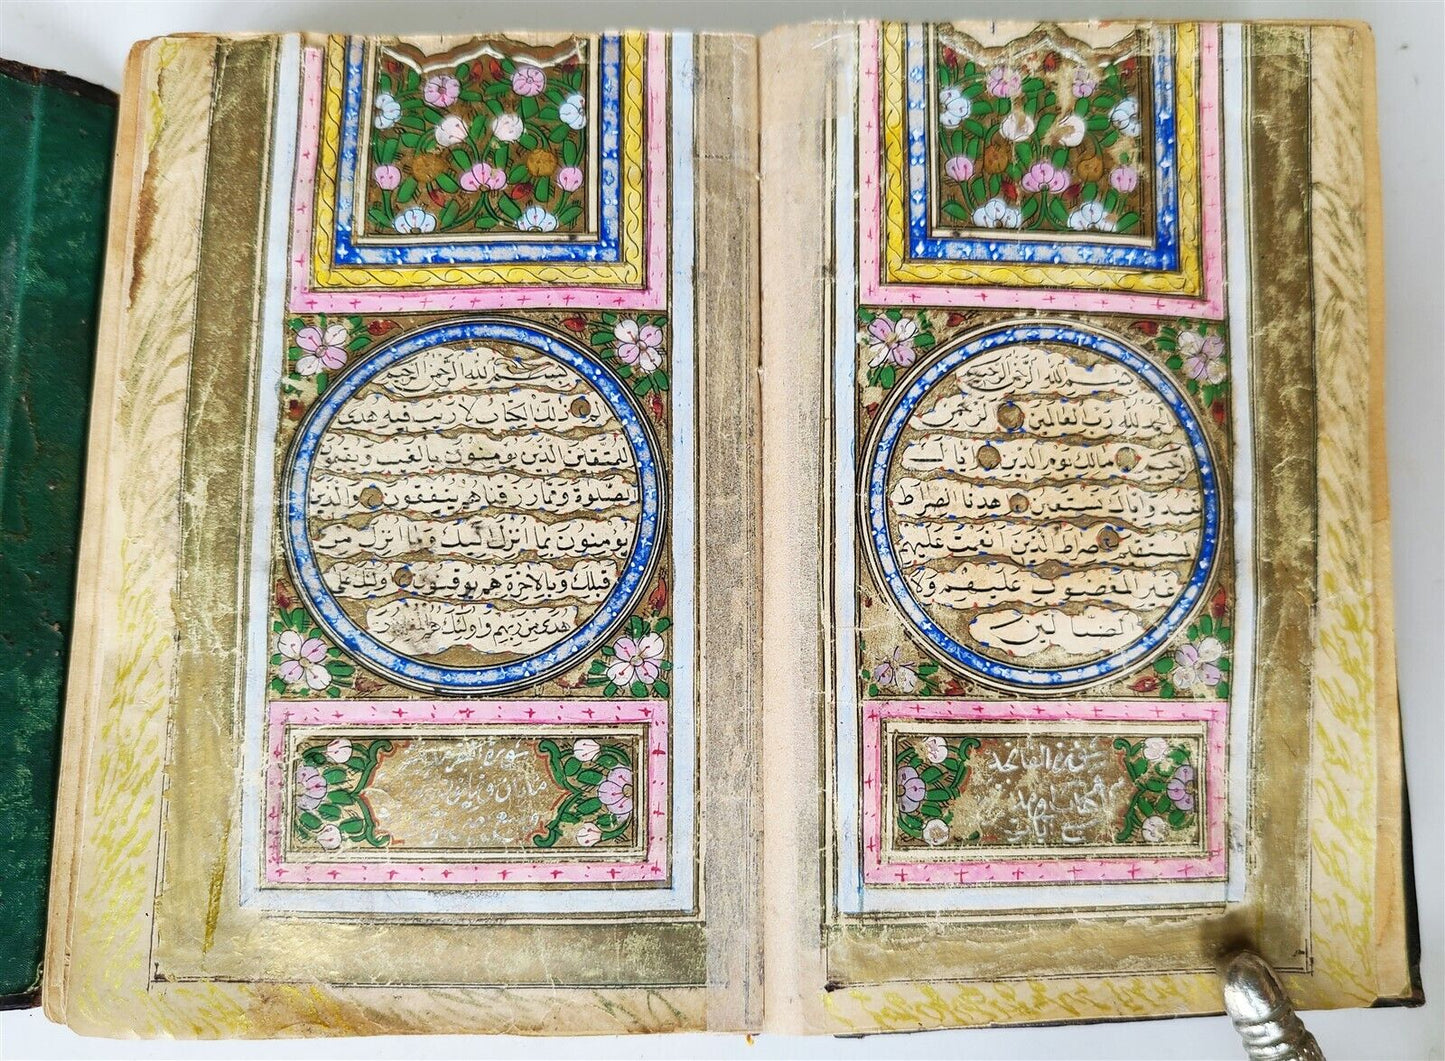 بسم الله الرحمن الرحيم
الحمد لله رب العالمين الرحمن
الرحيم مالك يوم الدين اياك
نعبد واياك نستعين اهدنا الصراط
المستقيم صراط الذين انعمت عليهم
غير المغضوب عليهم ولا
الضالين
سورة الفاتحة
آيات
بسم الله الرحمن الرحيم
الم ذلك الكتاب لاريب فيه هدى
للمتقين الذين يومنون بالغيب ويقيمون
الصلوة ومما رزقناهم ينفقون والذين
يومنون بما انزل اليك وما انزل من
قبلك وبالاخرة هم يوقنون اولئك على
هدى من ربهم واولئك هم المفلحون
سورة البقرة